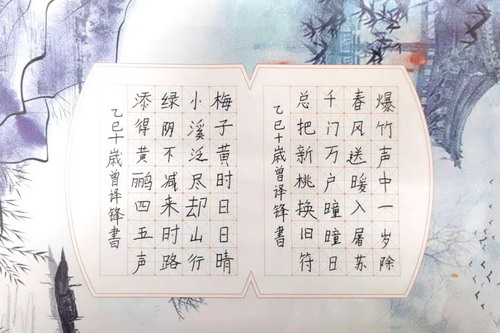 爆竹声中一岁除
春风送暖入屠苏
千门万户曈曈日
总把新桃换旧符
乙巳十歲曾译锋書
梅子黄时日日晴
小溪泛尽却山行
绿阴不减来时路
添得黄鹂四五声
乙巳十歲曾译锋書